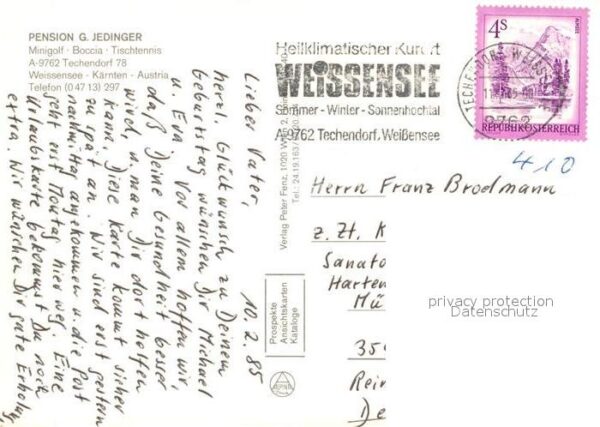 PENSION G. JEDINGER
Minigolf · Boccia · Tischtennis
A-9762 Techendorf 78
Weissensee · Kärnten · Austria
Telefon (0 47 13) 297
Heilklimatischer Kurort
WEISSENSEE
Sommer - Winter - Sonnenhochtal
A-9762 Techendorf, Weißensee
4 S
ALMSEE
REPUBLIK ÖSTERREICH
9762
410
10. 2. 85
Lieber Vater,
herzl. Glückwunsch zu Deinem
Geburtstag wünschen Dir Michael
u. Eva. Vor allem hoffen wir,
daß Deine Gesundheit besser
wird, u. man Dir dort helfen
kann. Diese Karte kommt sicher
zu spät an. Wir sind erst gestern
nachmittag angekommen u. die Post
geht erst Montag hier weg. Eine
Urlaubskarte bekommst Du noch
extra. Wir wünschen Dir gute Erholung
Verlag Peter Fenz, 1020 Wien
Tel.: 24.19.163
Prospekte
Ansichtskarten
Kataloge
Herrn Franz Brodmann
z. Zt. K
Sanato
Harten
Mü
35
Rein
De
privacy protection
Datenschutz